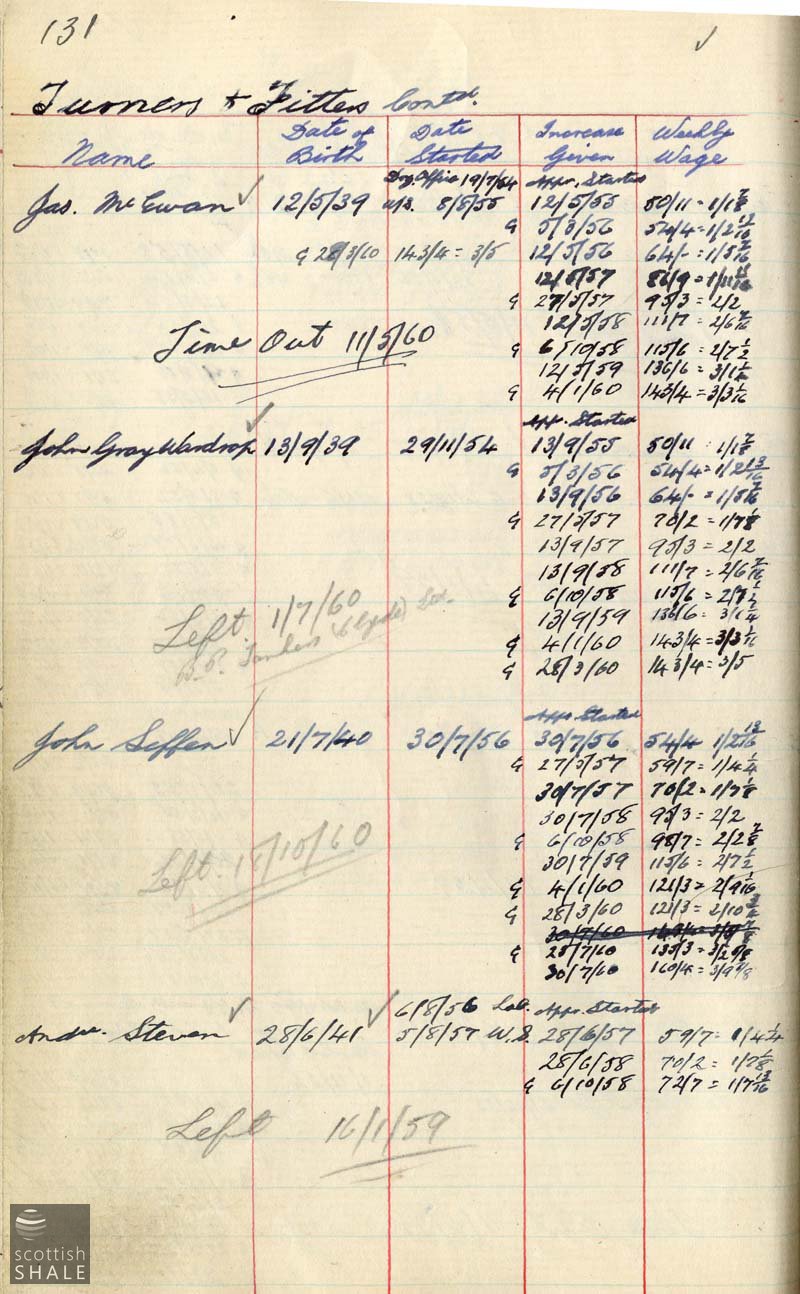 131
Turners & Fitters Contd.
Name Date of Birth Date Started Increase Given Weekly Wage
Drg. Office 19/7/54 Appr. Started
Jas. McEwan 12/5/39 W/S. 8/8/55 12/5/55 50/11 = 1/1 7/8
G 5/3/56 54/4 = 1/2 13/16
G 28/3/60 143/4 = 3/5 12/5/56 64/- = 1/5 7/16
12/5/57 86/9 = 1/11 11/16
G 27/5/57 95/3 = 2/2
12/5/58 111/7 = 2/6 7/16
Time Out 11/5/60
G 6/10/58 115/6 = 2/7 1/2
12/5/59 136/6 = 3/1 1/4
G 4/1/60 143/4 = 3/3 1/16
Appr. Started
John Gray Wardrop 13/9/39 29/11/54 13/9/55 50/11 = 1/1 7/8
G 5/3/56 54/4 = 1/2 13/16
13/9/56 64/- = 1/5 7/16
G 27/5/57 70/2 = 1/7 1/8
13/9/57 95/3 = 2/2
13/9/58 111/7 = 2/6 7/16
G 6/10/58 115/6 = 2/7 1/2
Left. 1/7/60 13/9/59 136/6 = 3/1 1/4
B.P. Tankers (Clyde) Ltd.
G 4/1/60 143/4 = 3/3 1/16
G 28/3/60 143/4 = 3/5
Appr. Started
John Seffen 21/7/40 30/7/56 30/7/56 54/4 1/2 13/16
G 27/5/57 59/7 = 1/4 1/4
30/7/57 70/2 = 1/7 1/8
30/7/58 95/3 = 2/2
G 6/10/58 98/7 = 2/2 7/8
30/7/59 115/6 = 2/7 1/2
Left. /10/60
G 4/1/60 121/3 = 2/9 1/16
G 28/3/60 121/3 = 2/10
30/7/60
G 25/7/60 135/3 =
30/7/60 160/4 =
6/8/56 Lab. Appr. Started
Andw. Steven 28/6/41 5/8/57 W.S. 28/6/57 59/7 = 1/4 1/4
28/6/58 70/2 = 1/7 1/8
G 6/10/58 72/7 = 1/7 13/16
Left 16/1/59
scottish
SHALE